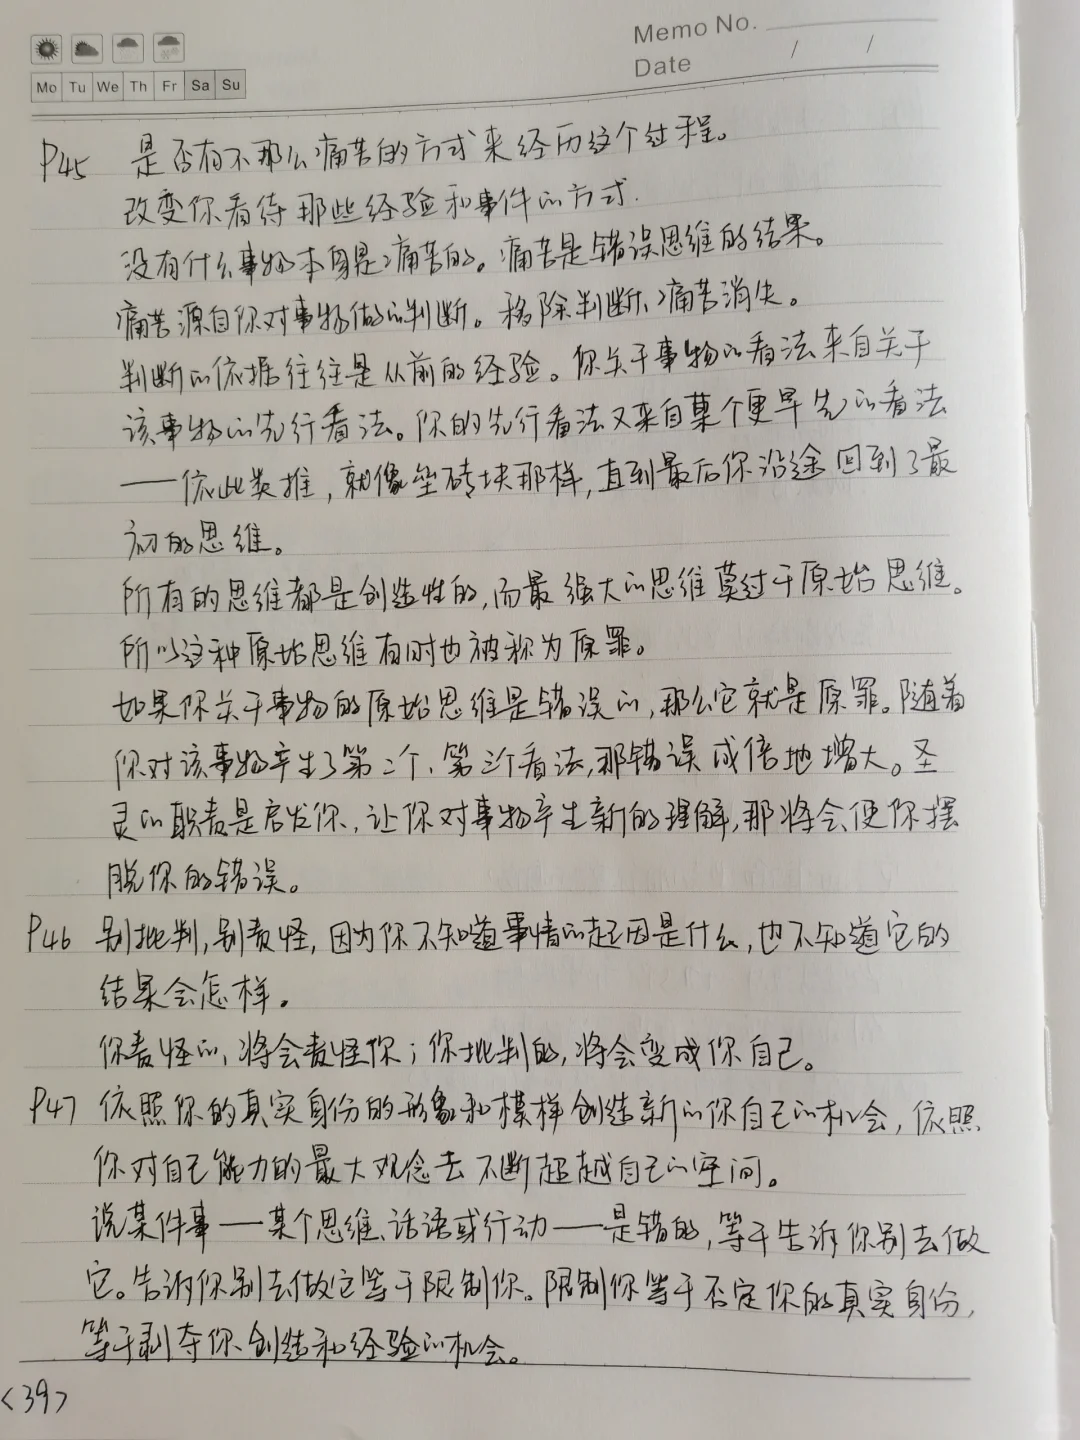 Memo No.
Date / /
Mo Tu We Th Fr Sa Su
P45 是否有不那么痛苦的方式来经历这个过程。
改变你看待那些经验和事件的方式.
没有什么事物本身是痛苦的。痛苦是错误思维的结果。
痛苦源自你对事物做的判断。移除判断、痛苦消失。
判断的依据往往是从前的经验。你关于事物的看法来自关于
该事物的先行看法。你的先行看法又来自某个更早先的看法
——依此类推，就像垒砖块那样，直到最后你沿途回到了最
初的思维。
所有的思维都是创造性的，而最强大的思维莫过于原始思维。
所以这种原始思维有时也被称为原罪。
如果你关于事物的原始思维是错误的，那么它就是原罪。随着
你对该事物产生了第二个、第三个看法，那错误成倍地增大。圣
灵的职责是启发你，让你对事物产生新的理解，那将会使你摆
脱你的错误。
P46 别批判，别责怪，因为你不知道事情的起因是什么，也不知道它的
结果会怎样。
你责怪的，将会责怪你；你批判的，将会变成你自己。
P47 依照你的真实身份的形象和模样创造新的你自己的机会，依照
你对自己能力的最大观念去不断超越自己的空间。
说某件事——某个思维、话语或行动——是错的，等于告诉你别去做
它。告诉你别去做它等于限制你。限制你等于否定你的真实身份，
等于剥夺你创造和经验的机会。
<39>